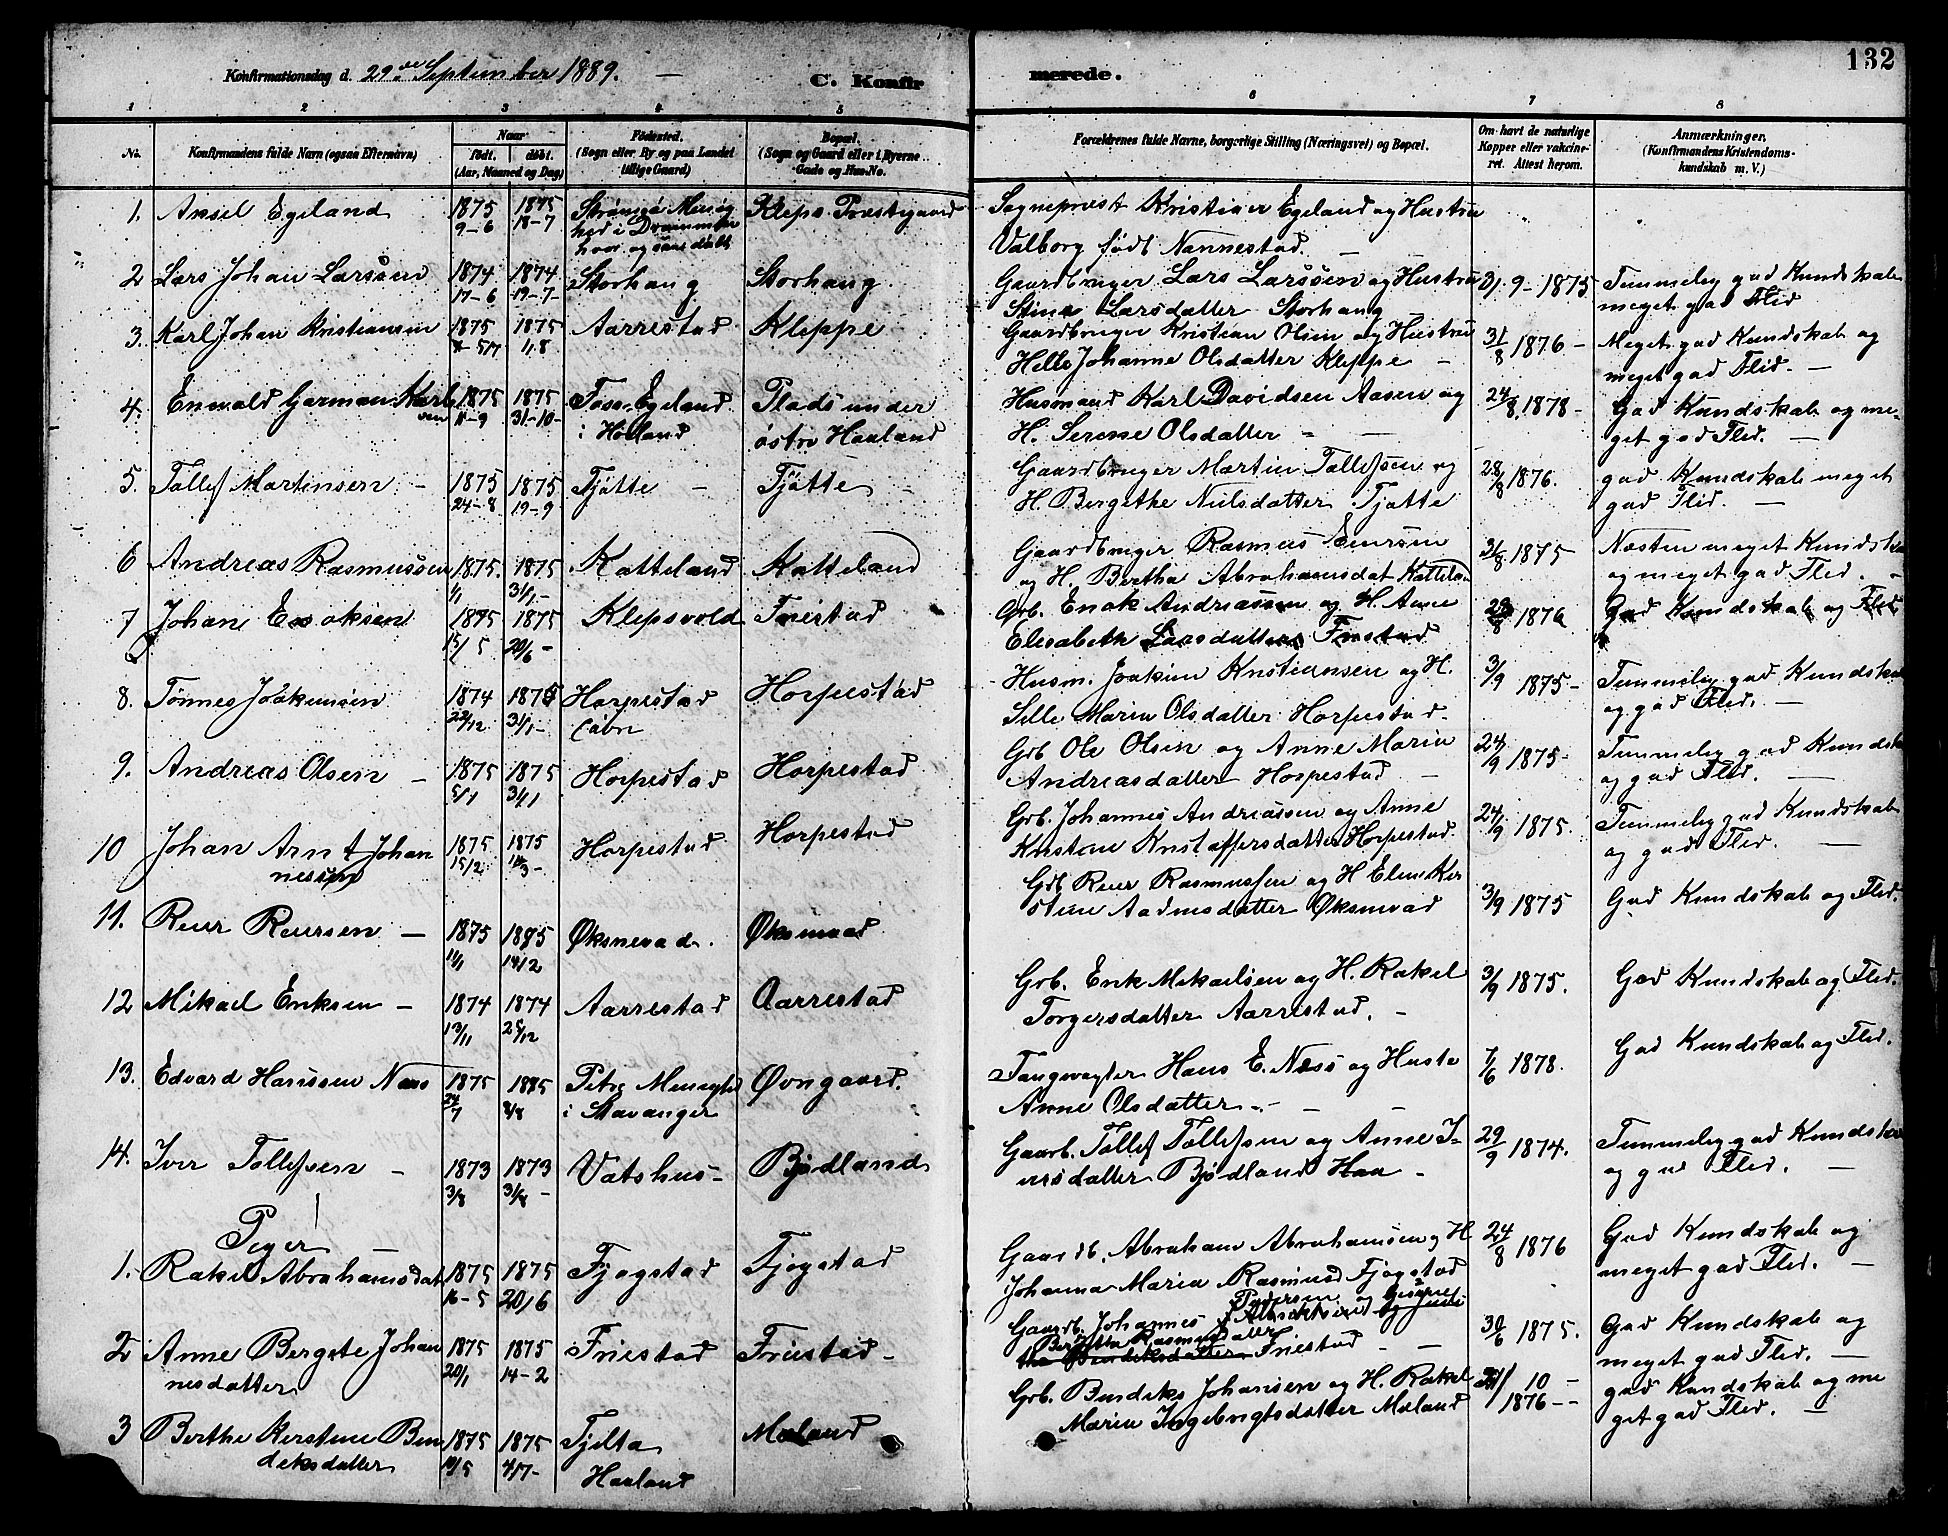 132
Konfirmationsdag d. 29de September 1889. —
C. Konfirmerede.
1 2 3 4 5 6 7 8
No.
Konfirmandens fulde Navn (ogsaa Efternavn)
Naar
født. døbt.
(Aar, Maaned og Dag)
Fødested.
(Sogn eller By og paa Landet
tillige Gaard)
Bopæl.
(Sogn og Gaard eller i Byerne
Gade og Hus-No.
Forældrenes fulde Navne, borgerlige Stilling (Næringsvei) og Bopæl.
Om havt de naturlige
Kopper eller vakcine-
ret. Attest herom.
Anmærkninger.
(Konfirmandens Kristendoms-
kundskab m. V.)
1. Axsel Egeland 1875 9-6 1875 18-7 Strømsø Menighed i Drammen hvor og saa døbt Kleps Præstegaard
Sognepræst Kristian Egeland og Hustru
Valborg født Nannestad
2 Lars Johan Larssen 1874 17-6 1874 19-7- Storhaug Storhaug
Gaardbruger Lars Larssen og Hustru
Stine Larsdatter Storhaug
3/9-1875 Temmelig god Kundskab
meget god Flid
3. Karl Johan Kristiansen 1875 1875 1/8 Aarrestad Kleppe
Gaardbruger Kristian Olsen og Hustru
Helle Johanne Olsdatter Kleppe -
31/8 1876 - Meget god Kundskab og
meget god Flid. -
4. Enevald Garman Karlsen 1875 11-9 1875 31-10- Foss-Egeland i Høiland Plads under østre Haaland
Husmand Karl Davidsen Aasen og
H. Serene Olsdatter
24/8 1878 - God Kundskab og me-
get god Flid. —
5. Tollef Martinsen - 1875 24-8 1875 19-9 Tjøtte - Tjøtte -
Gaardbruger Martin Tollefsen og
H. Bergithe Nilsdatter Tjøtte
28/8 1876. god Kundskab meget
god Flid. —
6 Andreas Rasmussen 1875. 1/1 1875 31/1- Katteland Katteland
Gaardbruger Rasmus Einersen
og H. Bertha Abrahamsdat Katteland
31/8 1875 Næsten meget Kundskab
og meget god Flid. -
7 Johan Enoksen 1875 15/5 1875 20/6- Klepsvold Friestad
Grb. Enok Andreassen og H. Anne
Elisabeth Larsdatter Friestad
28/8 1876 God Kundskab og Flid
8. Tønnes Joakimsen 1874 22/12 1875 31/1- Horpestad Horpestad
Husm. Joakim Kristiansen og H.
Sille Maria Olsdatter Horpestad.
3/9 1875- Temmelig god Kundskab
og god Flid. —
9. Andreas Olsen - 1875 5/1 1875 31/1 Horpestad Horpestad
Grb Ole Olsen og Anne Maria
Andreasdatter Horpestad. -
24/9 1875- Temmelig god Kundskab
og god Flid. —
10 Johan Arnt Johannessen 1875 15/2 1875 14/3- Horpestad Horpestad
Grb. Johannes Andreassen og Anne
Kristine Kristoffersdatter Horpestad
24/9 1875. Temmelig god Kundskab
og god Flid. —
11. Reier Reiersen — 1875 1875 14/2 Øksnevad. Øksnevad
Grb Reier Rasmussen og H Eline Ker
stine Aadnesdatter Øksnevad
3/9 1875 God Kundskab og Flid.
12 Mikael Eriksen - 1874 13/11 1874 25/12 Aarrestad Aarrestad
Grb. Erik Mikaelsen og H. Rakel
Torgersdatter Aarrestad. -
3/9 1875. God Kundskab og Flid.
13. Edvard Hanssen Næss 1875 24/7 1875 Petri Menighed i Stavanger Øvngaard.
Tangvagter Hans E. Næss og Hustr
Anne Olsdatter -
7/6 1878. God Kundskab og Flid.
14. Iver Tollefsen - 1873 3/8 1873 31/8- Vatshus- Bjødland
Gaardb. Tollef Tollefsen og Anne I-
versdatter Bjødland Haa -
29/9 1874. Temmelig god Kundskab
og god Flid. —
Piger
1. Rakel Abrahamsdat 1875 16-5 1875 20/6 Fjogstad Fjogstad
Gaardb. Abraham Abrahamsen og H
Johanna Maria Rasmusd Fjogstad
24/8 1876 God Kundskab og
meget god Flid. —
2 Anne Bergete Johannesdatter 1875 20/1 1875 14-2 Friestad Friestad -
Gaardb. Johannes Pedersen og
Bertha Rasmusdatter Friestad - -
30/6 1875. God Kundskab og
meget god Flid. —
3 Berthe Kerstine Bendeksdatter 1875 1875 4/7- Tjelta Haaland Mæland
Grb. Bendeks Johansen og H. Rakel
Maria Ingebrigtsdatter Mæland
10 - 1876-- god Kundskab og me
get god Flid. —